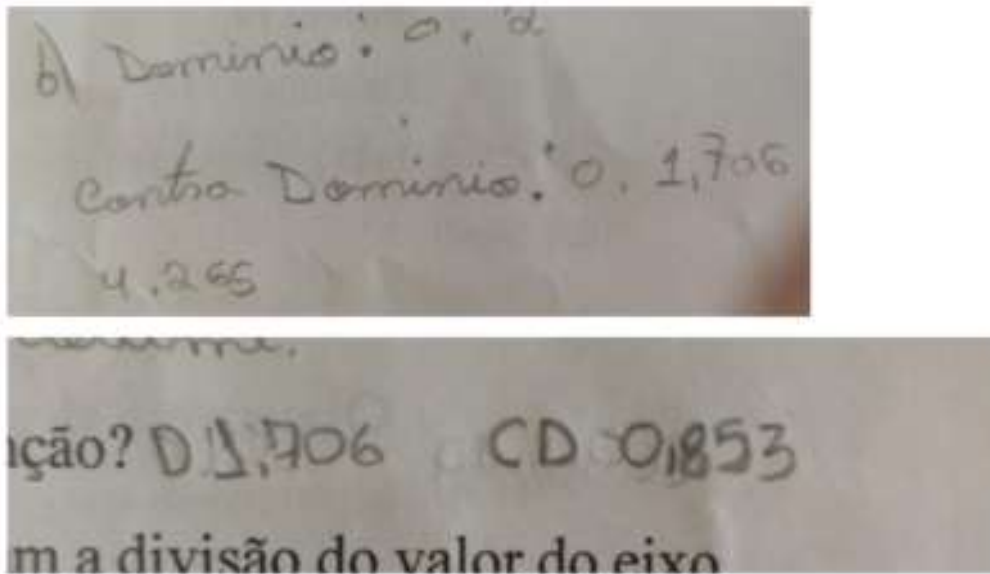 b) Dominio: 0, 2
Contra Dominio: 0, 1,706
4,265
ação? D 1,706 CD 0,853
m a divisão do valor do eixo